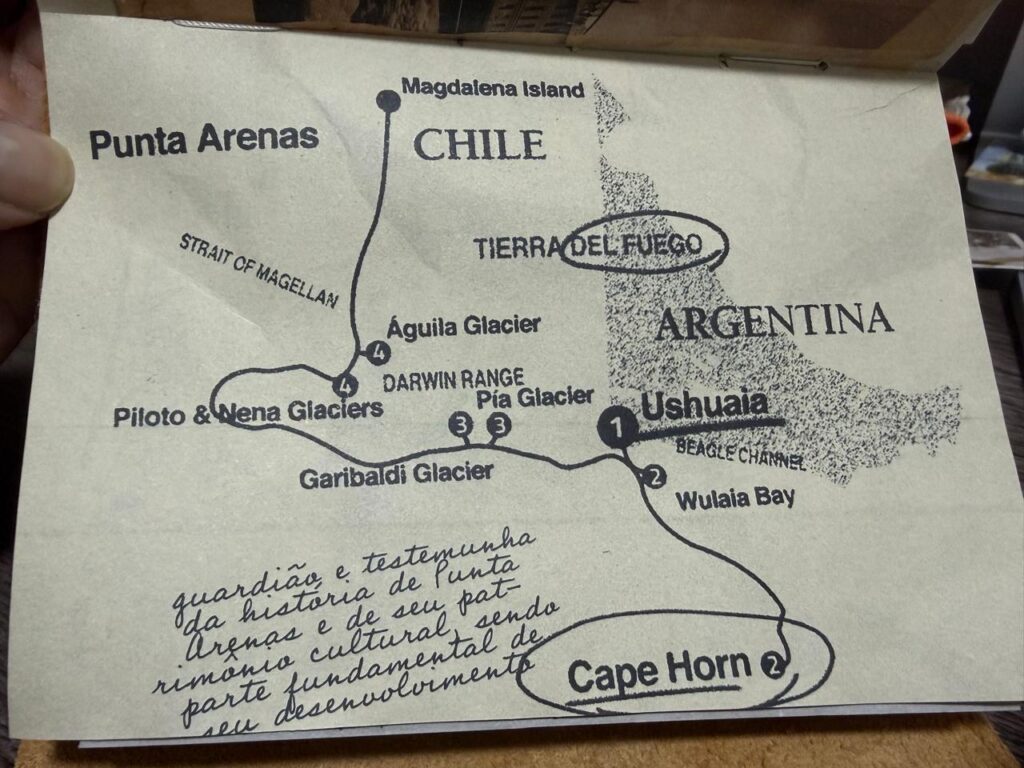 Magdalena Island
Punta Arenas
CHILE
STRAIT OF MAGELLAN
TIERRA DEL FUEGO
ARGENTINA
Águila Glacier
4
4
DARWIN RANGE
Piloto & Nena Glaciers
Pía Glacier
3 3
1 Ushuaia
BEAGLE CHANNEL
Garibaldi Glacier
2
Wulaia Bay
guardião e testemunha
da história de Punta
Arenas e de seu pat-
rimônio cultural, sendo
parte fundamental de
seu desenvolvimento
Cape Horn 2